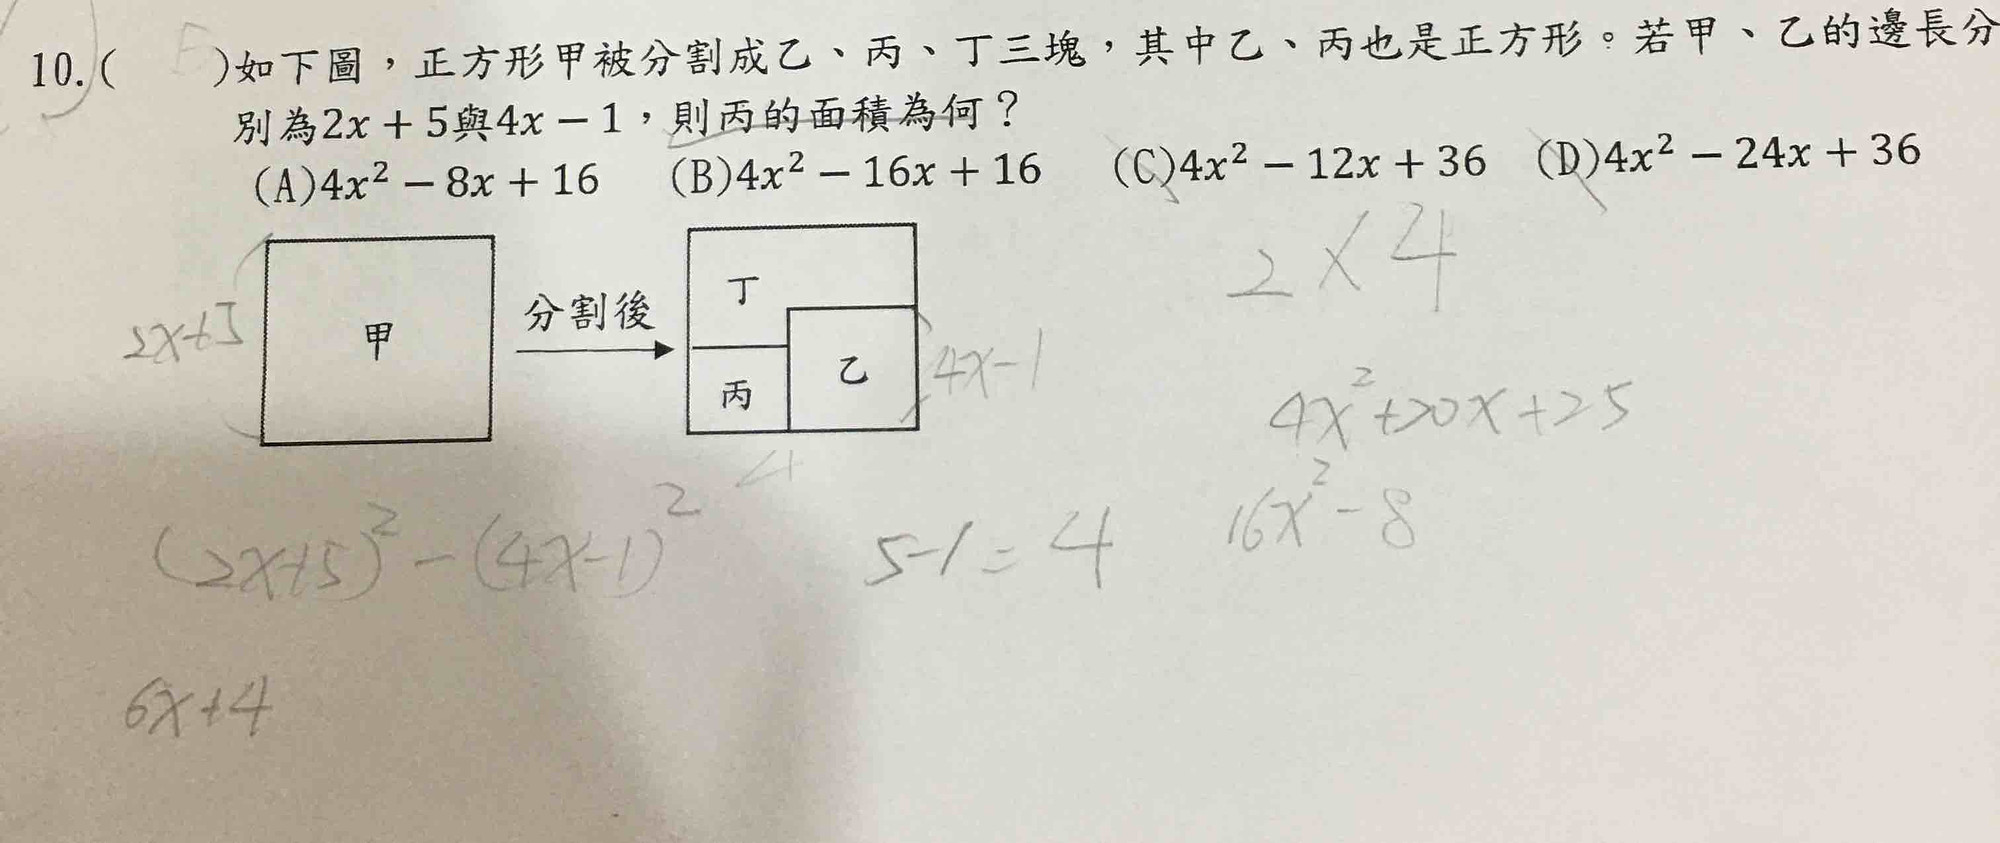 10.( )如下圖，正方形甲被分割成乙、丙、丁三塊，其中乙、丙也是正方形。若甲、乙的邊長分
別為2x + 5與4x − 1，則丙的面積為何？
(A)4x² − 8x + 16 (B)4x² − 16x + 16 (C)4x² − 12x + 36 (D)4x² − 24x + 36
2×4
甲
分割後
丁
丙
乙
2x+5
4x-1
4x²+20x+25
16x²-8
(2x+5)²-(4x-1)²
5-1=4
6x+4